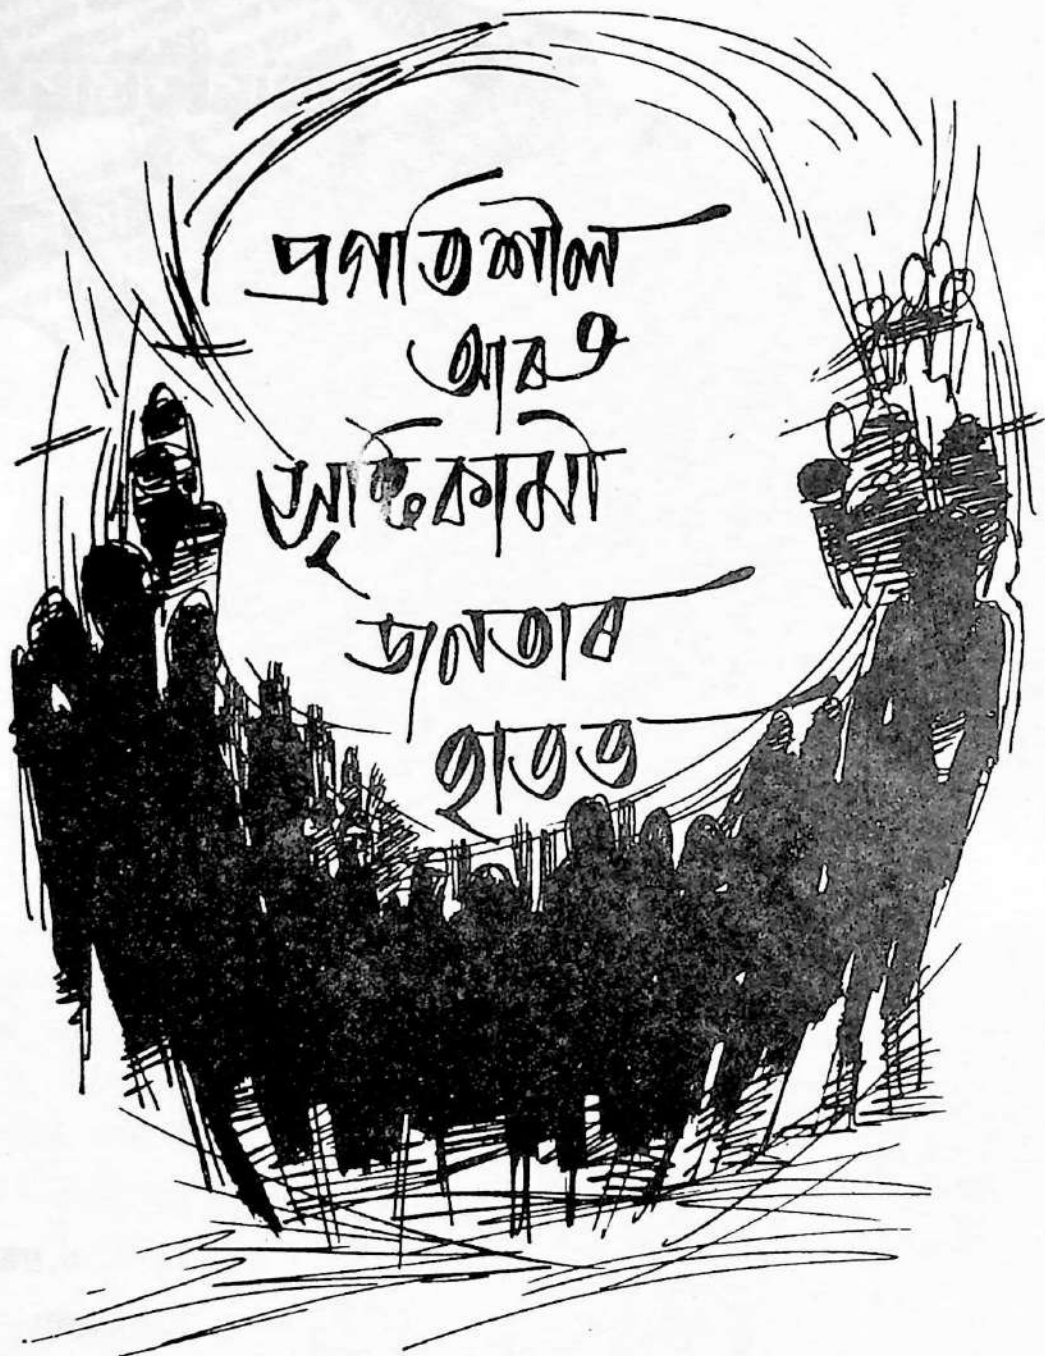 প্ৰগতিশীল
আৰু
মুক্তিকামী
জনতাৰ
হাতত